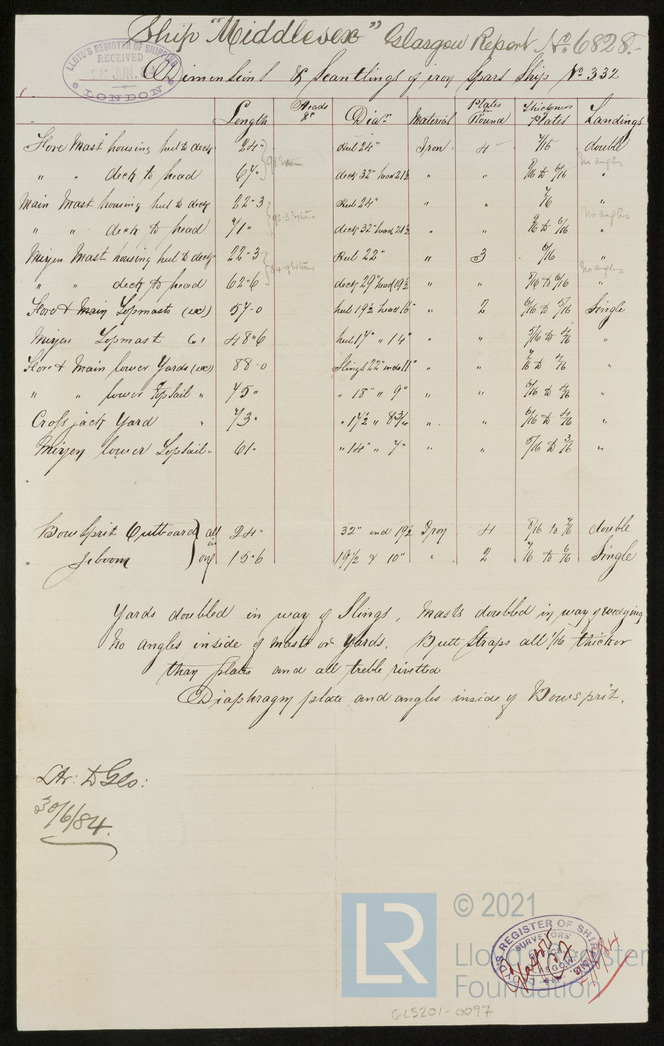 Ship "Middlesex" Glasgow Report No. 6828.-
LLOYD'S REGISTER OF SHIPPING
RECEIVED
LONDON
Dimensions & Scantlings of iron Spars Ship No 332
Length Heads &c Diar. Material Plates Round Thickness Plates Landings
Fore Mast housing heel to deck 24" heel 24" Iron 4 7/16 double
" " deck to head 67" deck 32" head 21½ " " 8/16 to 6/16 " No angles
Main Mast housing heel to deck 22-3 heel 24" " " 7/16 "
" " deck to head 71" deck 32" head 21½ " " 8/16 to 6/16 " No angles
Mizen Mast housing heel to deck 22-3 heel 22" " 3 6/16 "
" " deck to head 62-6 deck 29" head 19½ " " 8/16 to 6/16 " No angles
Fore & Main Topmasts (ea) 57-0 heel 19½ head 15" " 2 6/16 to 5/16 Single
Mizen Topmast 48"6 heel 17" " 14" " " 5/16 to 4/16 "
Fore & Main lower Yards (ea) 88-0 Slings 22" ends 11" " " 7/16 to 4/16 "
" " lower Topsail " 75" " 18" " 9" " " 6/16 to 4/16 "
Cross jack Yard " 73" " 17½ " 8¾ " " 6/16 to 4/16 "
Mizen lower Topsail " 61- " 14" " 7" " " 5/16 to 3/16 "
Bowsprit Outboard } all 24" 32" end 19½ Iron 4 8/16 to 7/16 double
Jiboom } in one 15-6 19½ & 10" " 2 7/16 to 6/16 Single
Yards doubled in way of Slings, Masts doubled in way of wedging
No angles inside of masts or Yards. Butt Straps all 1/16 thicker
than plates and all treble rivetted
Diaphragm plate and angles inside of Bowsprit.
Lr: to Gls:
30/6/84.
LLOYD'S REGISTER OF SHIPPING
SURVEYORS
GLASGOW
LR
© 2021
Lloyd's Register
Foundation
GLS201-0097